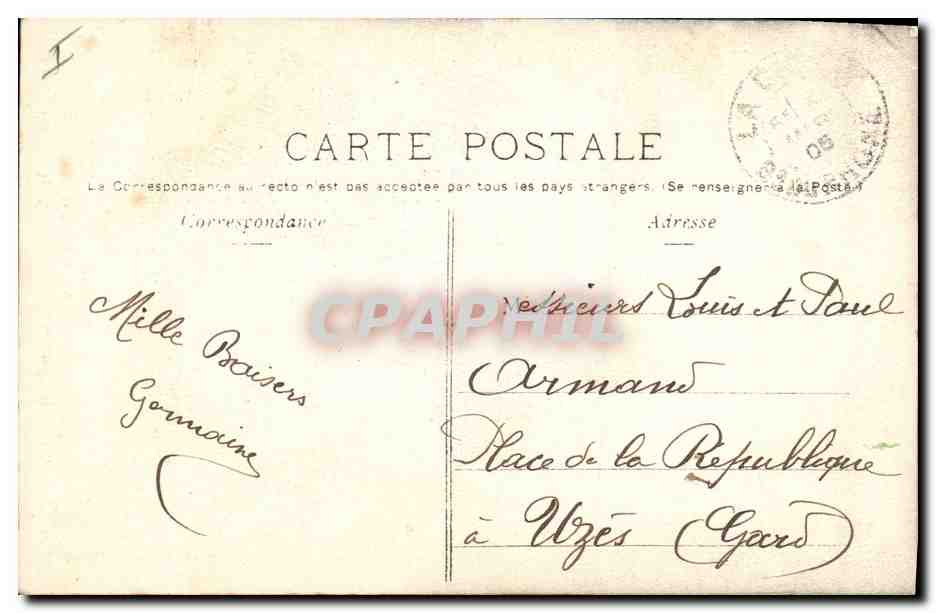 I
CARTE POSTALE
La Correspondance au recto n'est pas acceptée par tous les pays étrangers. (Se renseigner à la Poste.)
Correspondance
Mille Baisers
Germaine
Adresse
Messieurs Louis et Paul
Armand
Place de la République
à Uzès (Gard)
CPAPHIL
LA
05